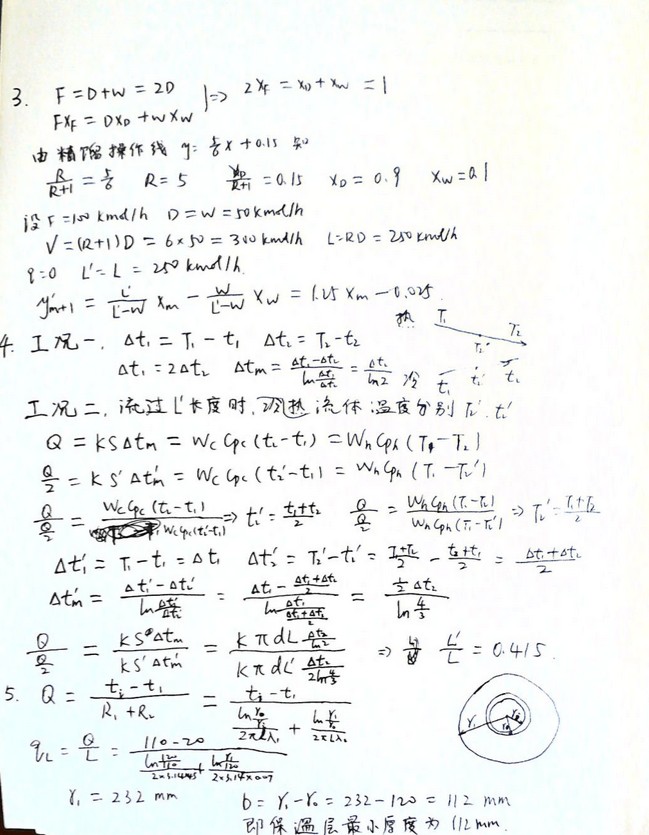 3. F=D+W = 2D ⇒ 2xF = xD + xW = 1
FxF = DxD + WxW
由精馏操作线 y= 5/6 x + 0.15 知
R/(R+1) = 5/6 R=5 xD/(R+1) = 0.15 xD = 0.9 xW=0.1
设F=100 kmol/h D=W=50kmol/h
V=(R+1)D = 6×50=300kmol/h L=RD=250kmol/h
q=0 L'=L=250kmol/h
y'm+1 = L'/(L'-W) xm - W/(L'-W) xW = 1.25 xm - 0.025
热 T1 T2' T2
4. 工况一. Δt1 = T1-t1 Δt2 = T2-t2
Δt1 = 2Δt2 Δtm = (Δt1-Δt2)/(ln Δt1/Δt2) = Δt2/ln2
冷 t1 t2' t2
工况二. 流过L'长度时, 冷热流体温度分别T2'. t2'
Q = KSΔtm = WcCpc(t2-t1) = WhCph(T1-T2)
Q/2 = KS'Δtm' = WcCpc(t2'-t1) = WhCph(T1-T2')
Q/(Q/2) = WcCpc(t2-t1)/WcCpc(t2'-t1) ⇒ t2' = (t1+t2)/2 Q/(Q/2) = WhCph(T1-T2)/WhCph(T1-T2') ⇒ T2' = (T1+T2)/2
Δt1' = T1-t1 = Δt1 Δt2' = T2'-t2' = (T1+T2)/2 - (t2+t1)/2 = (Δt1+Δt2)/2
Δtm' = (Δt1'-Δt2')/(ln Δt1'/Δt2') = (Δt1 - (Δt1+Δt2)/2)/(ln Δt1/((Δt1+Δt2)/2)) = (1/2 Δt2)/(ln 4/3)
Q/(Q/2) = KSΔtm/KS'Δtm' = (KπdL Δt2/ln2)/(KπdL' Δt2/(2ln 4/3)) ⇒ L'/L = 0.415.
5. Q = (tj-t1)/(R1+R2) = (tj-t1)/((ln r0/rj)/(2πLλ1) + (ln r1/r0)/(2πLλ0))
r1 r0 rj
qL = Q/L = (110-20)/((ln 120/110)/(2×3.14×45) + (ln r1/120)/(2×3.14×0.07))
r1 = 232 mm b = r1-r0 = 232-120 = 112 mm
即保温层最小厚度为112mm.